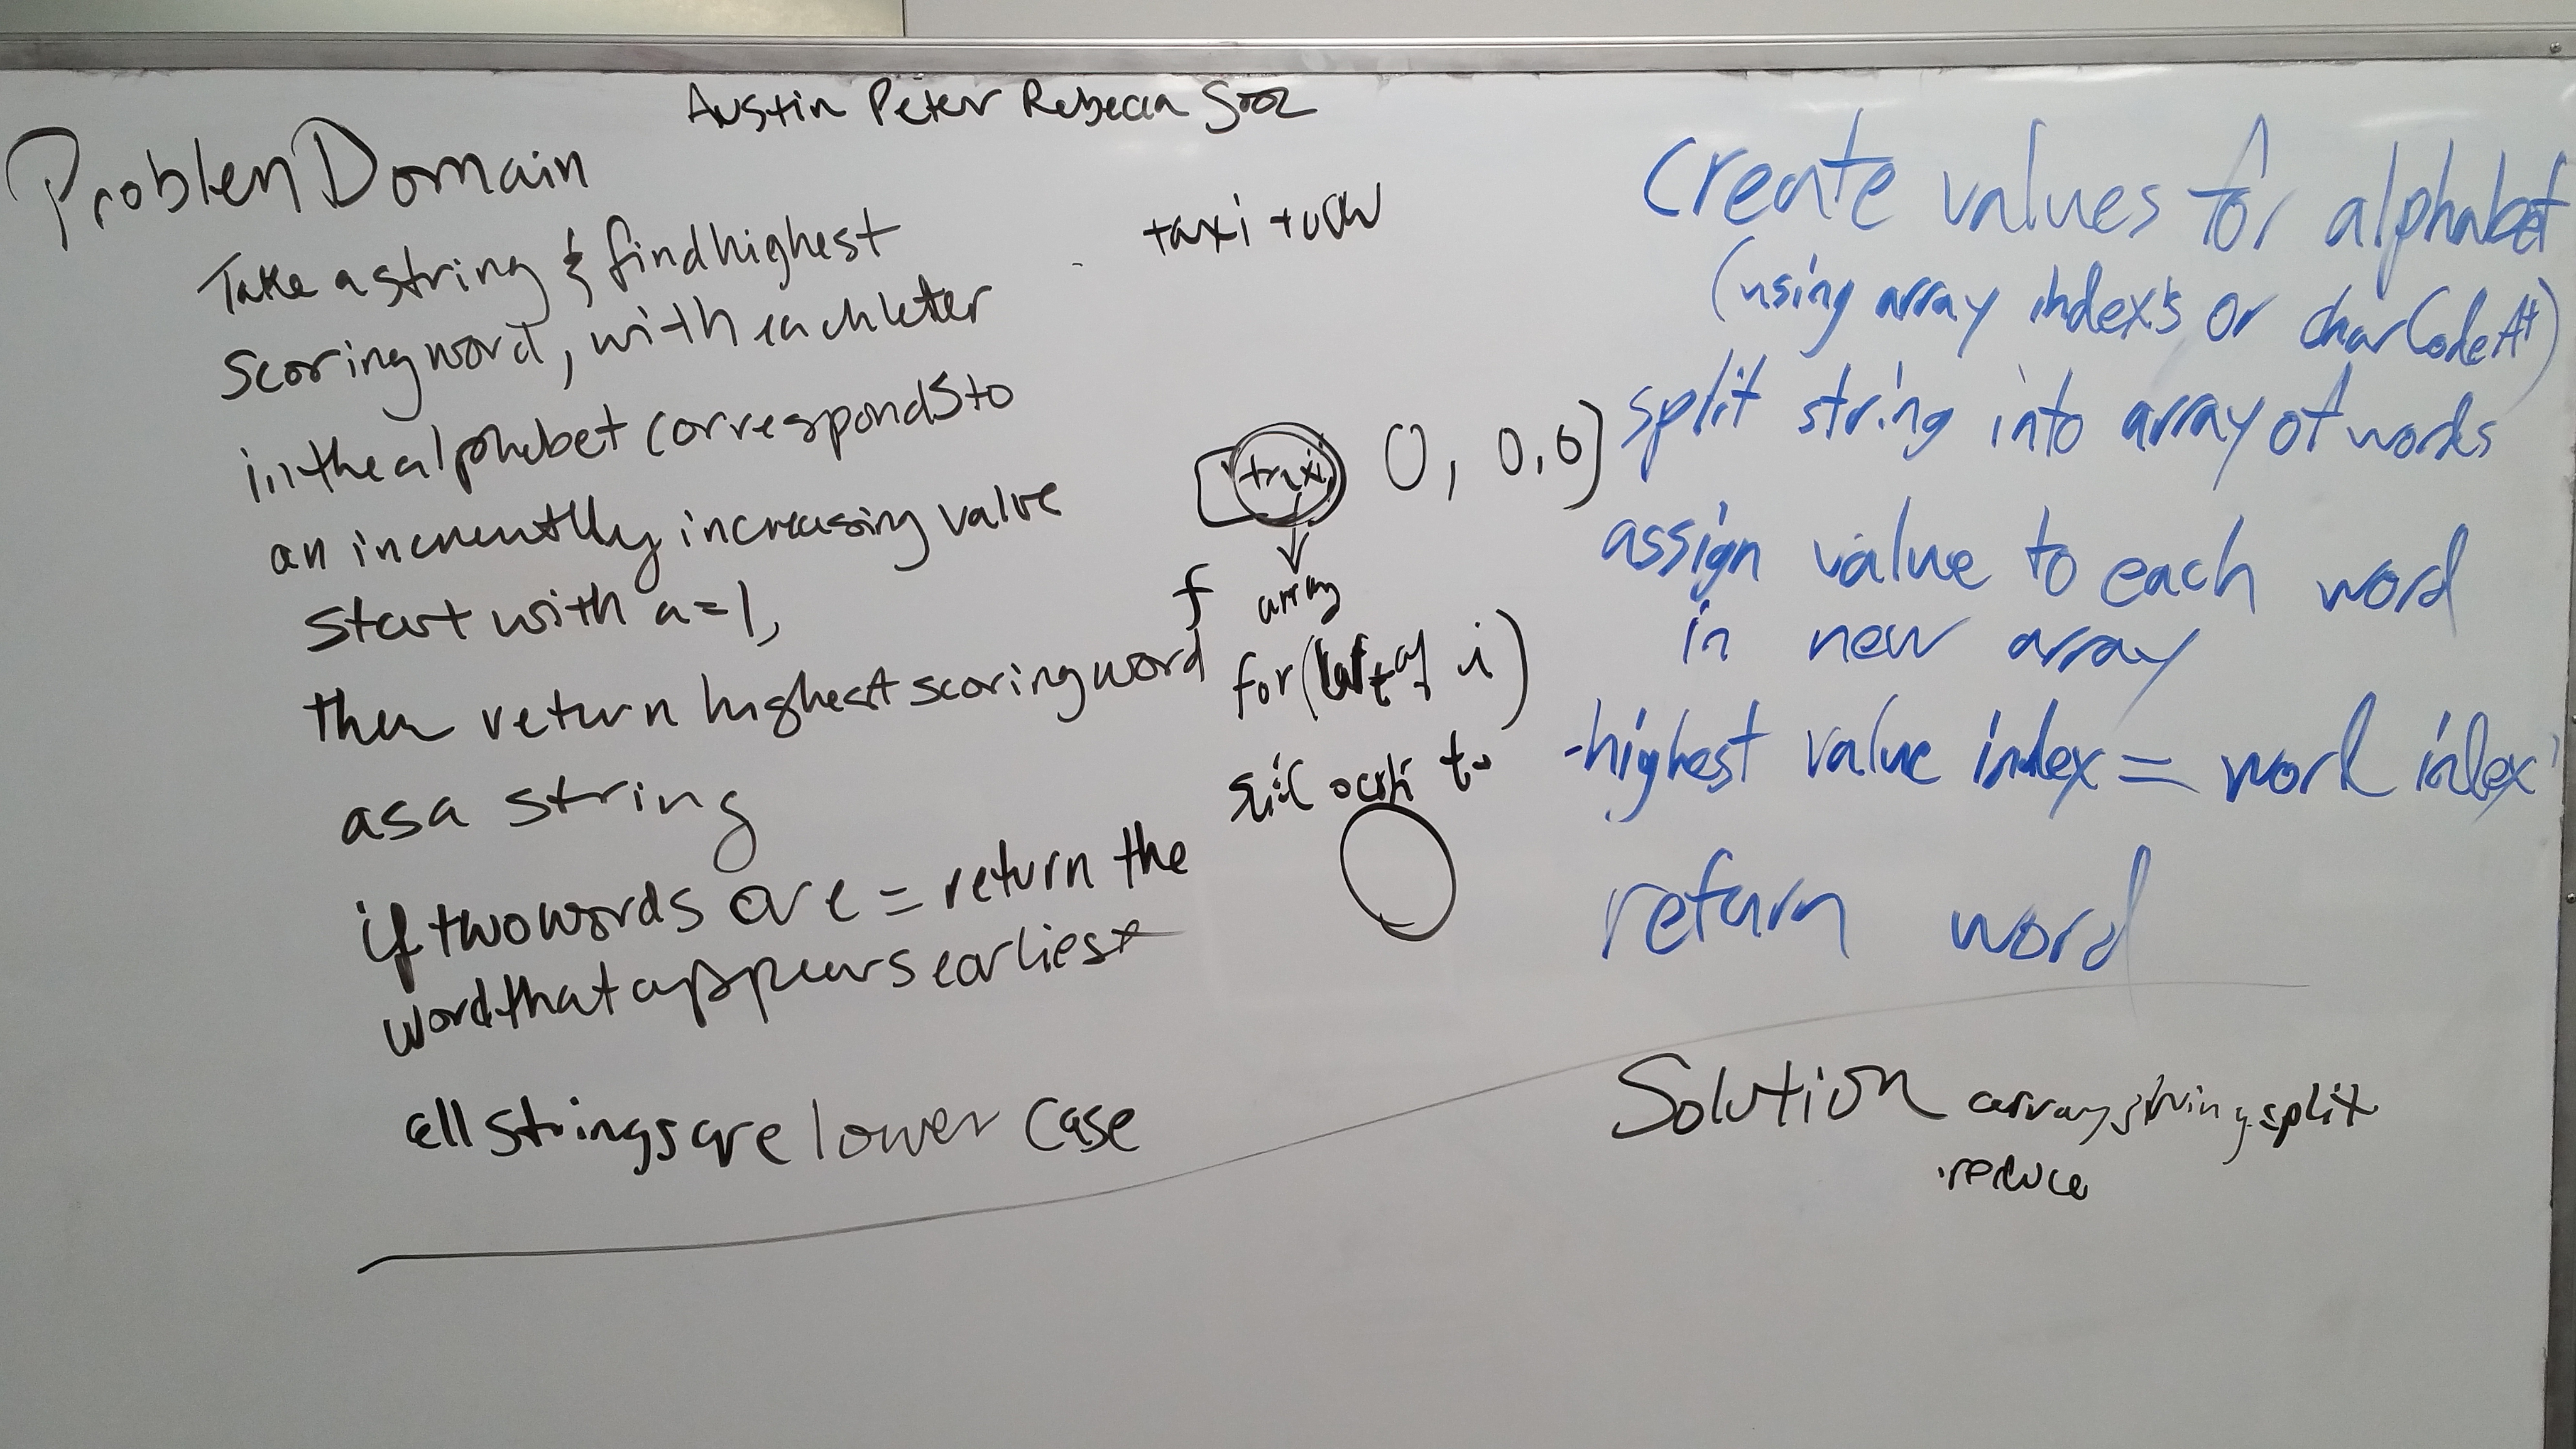 Austin Peter Rebecca
Problem Domain
Take a string & find highest
scoring word, with each letter
in the alphabet corresponds to
an incrementlly increasing value
start with a=1,
then return highest scoring word
as a string
if two words are = return the
word that appears earliest
all strings are lower case
taxi
taxi, 0, 0,0]
array
f
for( i)
create values for alphabet
(using array index's or charCodeAt)
split string into array of words
assign value to each word
in new array
-highest value index = word index
return word
Solution array string.split
.reduce